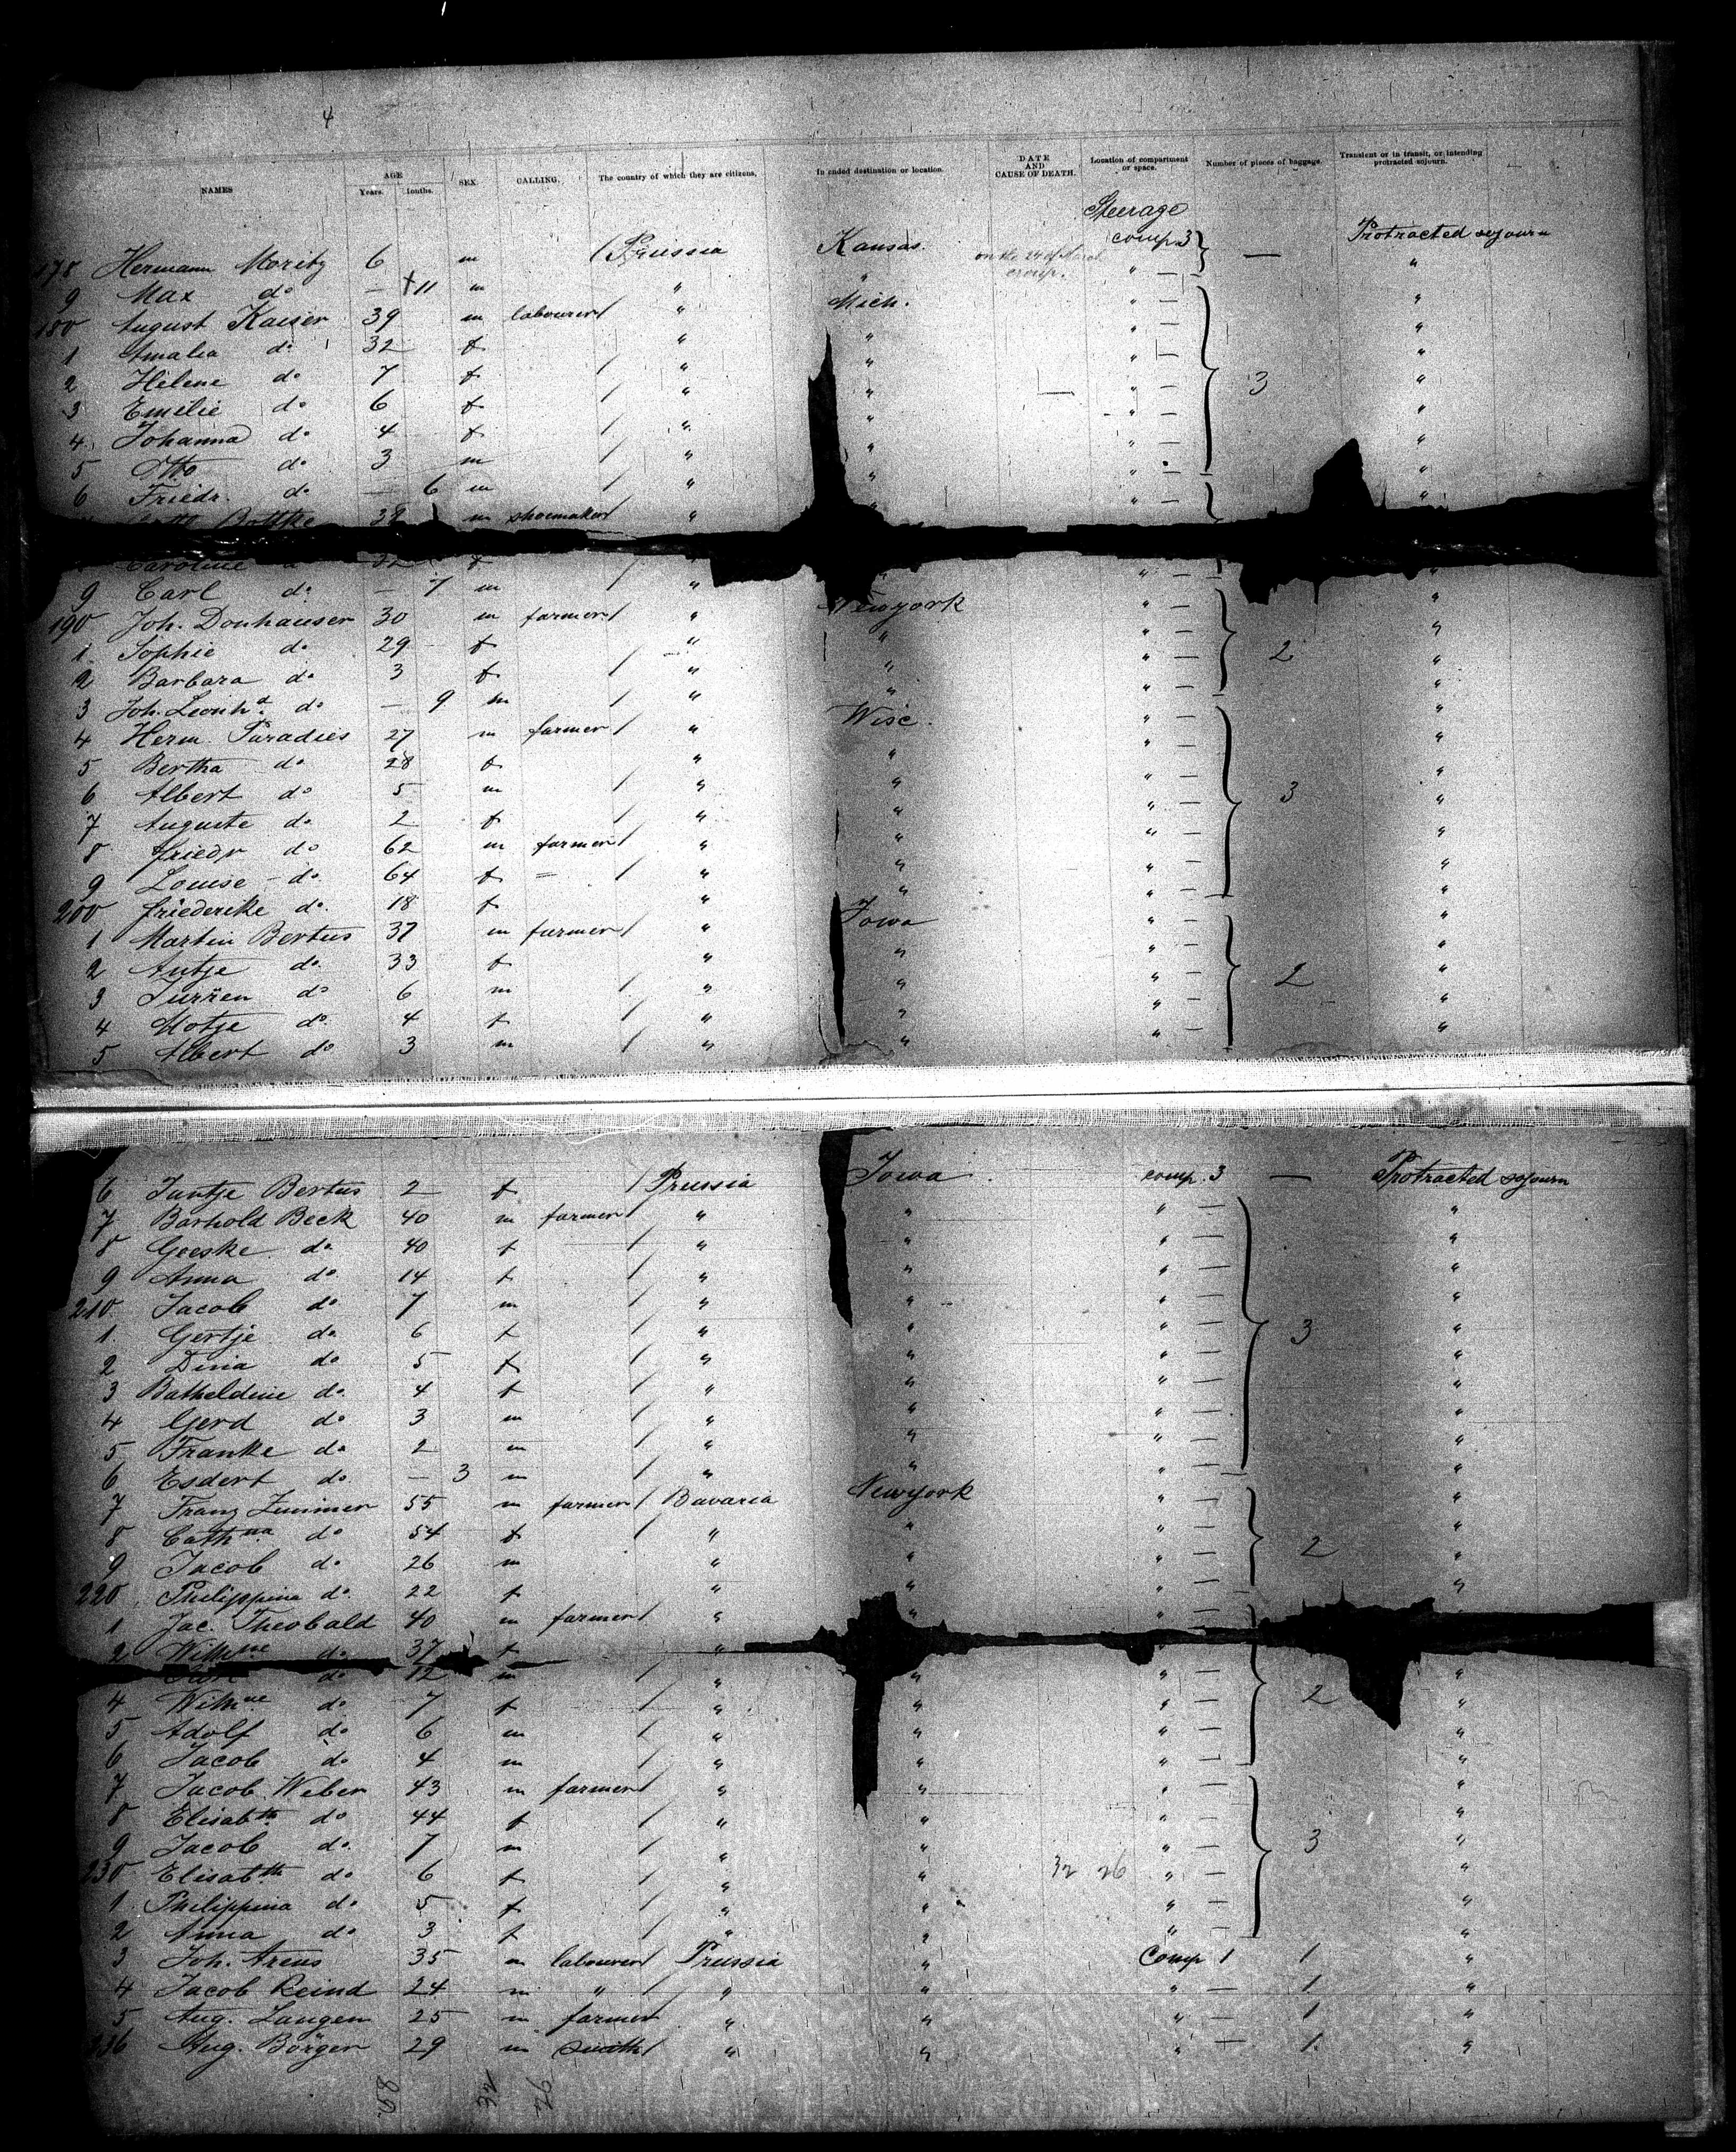 4
NAMES AGE Years. Months. SEX. CALLING. The country of which they are citizens. In ended destination or location. DATE AND CAUSE OF DEATH. Location of compartment or space. Number of pieces of baggage. Transient or in transit, or intending protracted sojourn.
Steerage
178 Hermann Moritz 6 m / Prussia Kansas. comp. 3 — Protracted sojourn
9 Max do — †11 m " " on the 24 of March croup. " — "
180 August Kaiser 39 m labourer / " Mich. " — "
1 Amalia do 32 f " " " — "
2 Helene do 7 f / " " " — "
3 Emilie do 6 f / " " " — 3 "
4 Johanna do 4 f / " " " — "
5 Otto do 3 m / " " " — "
6 Friedr. do — 6 m / " " " — "
Bottke 38 m shoemaker / " " " — "
Caroline 32 f / "
9 Carl do — 7 m / " " " — "
190 Joh. Donhauser 30 m farmer / " Newyork " — "
1 Sophie do 29 f " " " — 2 "
2 Barbara do 3 f / " " " — "
3 Joh. Leonhd. do — 9 m / " " " — "
4 Herm. Paradies 27 m farmer / " Wisc. " — "
5 Bertha do 28 f " " " — "
6 Albert do 5 m / " " " — 3 "
7 Auguste do 2 f / " " " — "
8 Friedr do 62 m farmer / " " " — "
9 Louise do 64 f = / " " " — "
200 Friederike do. 18 f " " " — "
1 Martin Bertus 37 m farmer / " Iowa " — "
2 Antje do. 33 f " " " — "
3 Jurren do 6 m / " " " — 2 "
4 Motje do. 4 f / " " " — "
5 Albert do 3 m / " " " — "
6 Jantje Bertus 2 f / Prussia Iowa. comp. 3 — Protracted sojourn
7 Barhold Beck 40 m farmer / " " " — "
8 Geeske do. 40 f / " " " — "
9 Anna do. 14 f / " " " — "
210 Jacob do. 7 m / " " " — "
1. Gertje do. 6 f / " " " — 3 "
2 Dina do 5 f / " " " — "
3 Batheldine do. 4 f / " " " — "
4 Gerd do 3 m / " " " — "
5 Franke do 2 m / " " " — "
6 Esdert do. — 3 m / " " " — "
7 Franz Zimmer 55 m farmer / Bavaria Newyork " — "
8 Cathna. do 54 f / " " " — "
9 Jacob do. 26 m " " " — 2 "
220 Philippina do. 22 f " " " — "
1 Jac. Theobald 40 m farmer / " " " —
2 Wilhne do. 37 f "
do 12 m / " " " — "
4 Wilhne. do. 7 f / " " " — 2 "
5 Adolf do 6 m / " " " — "
6 Jacob do 4 m / " " " — "
7 Jacob Weber 43 m farmer / " " " — "
8 Elisabth. do 44 f / " " " — "
9 Jacob do. 7 m / " " " — 3 "
230 Elisabth do 6 f / " " 32 26 " — "
1 Philippina do 5 f / " " " — "
2 Anna do 3 f / " " " — "
3 Joh. Arens 35 m labourer / Prussia " Comp 1 1 "
4 Jacob Reind 24 m " / " " " — 1 "
5 Aug. Langen 25 m farmer " " " — 1 "
236 Aug. Börger 29 m smith / " " " — 1. "
58 32 26